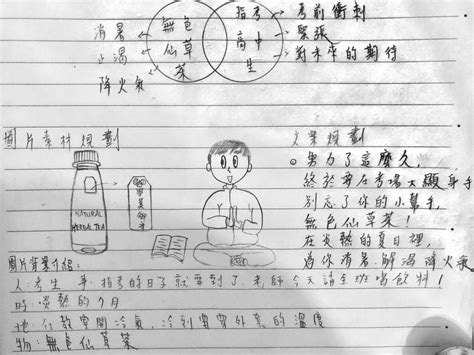 指考 → 考前衝刺
高中生 → 緊張
→ 對未來的期待
無色仙草茶
消暑
止渴
降火氣
圖片素材規劃
NATURAL
HERBAL TEA
文案規劃
努力了這麼久,
終於要在考場大顯身手
別忘了你的小幫手,
無色仙草茶!
在炎熱的夏日裡,
為你消暑.解渴降火氣
圖片背景介紹:
人:考生
事:指考的日子就要到了,老師今天請全班喝飲料!
時:炎熱的7月
地:在教室開冷氣,冷到
外面的溫度
物:無色仙草茶